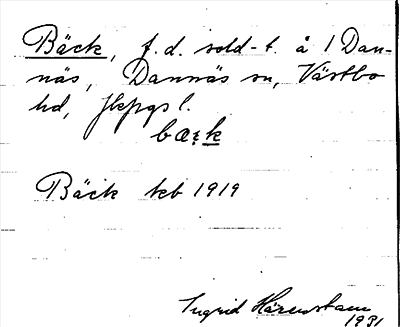 Bäck, f.d. sold-t. å 1 Dan-
näs, Dannäs sn, Västbo
hd, Jkpgs l.
bæ̨k
Bäck kb 1919
Ingrid Härenstam
1931